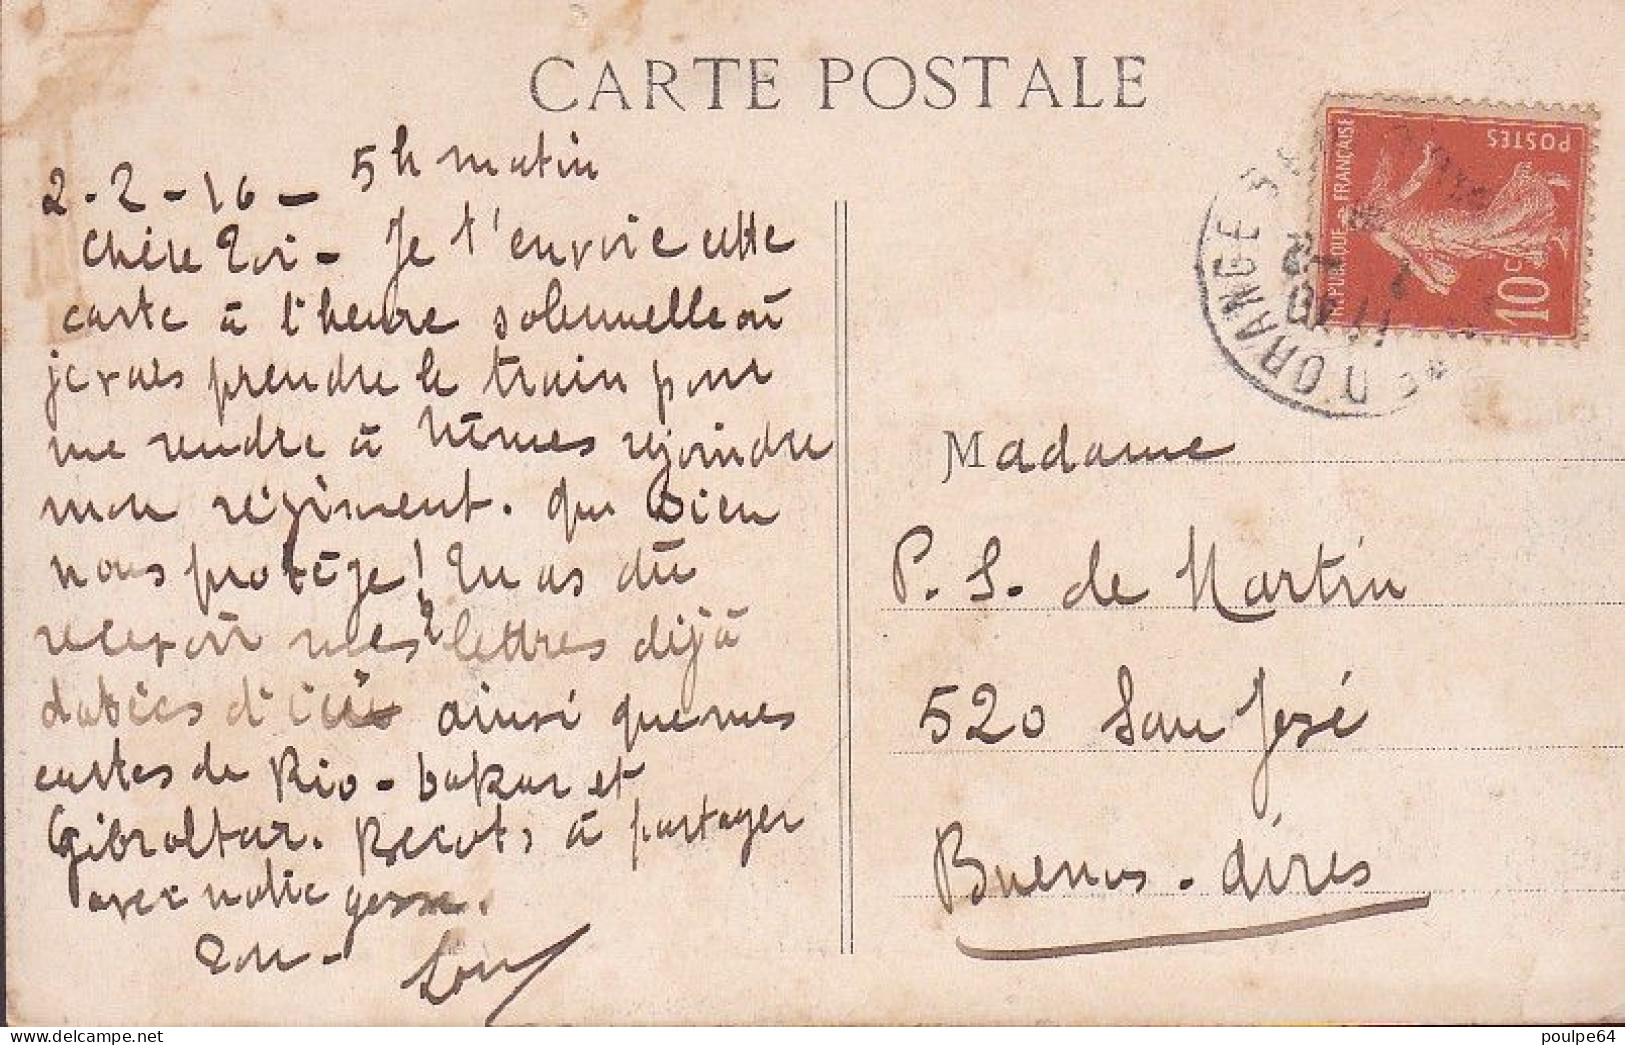 CARTE POSTALE
2-2-16 - 5h matin
Chère Toi - Je t'envoie cette
carte à l'heure solennelle où
je vais prendre le train pour
me rendre à Nîmes rejoindre
mon régiment. Que Dieu
nous protège! Tu as dû
recevoir mes 2 lettres déjà
datées d'ici ainsi que mes
cartes de Rio - Dakar et
Gibraltar. Becots à partager
avec notre gosse.
Ton - Lou
RÉPUBLIQUE FRANÇAISE
POSTES
10 C
D'ORANGE
Madame
P. S. de Martin
520 San José
Buenos-Aires
poulpe64